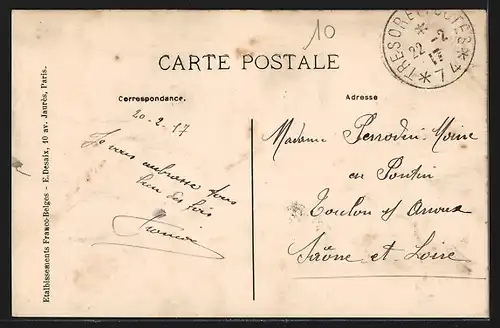 10
TRESOR ET POSTES
22 - 2
17
* 74 *
CARTE POSTALE
Correspondance.
Adresse
20-2-17
Je vous embrasse tous
bien des fois
Madame
en Pontin
Toulon s/ Arroux
Saône et Loire
Etablissements Franco-Belges - E. Desaix, 10 av. Jaurès, Paris.